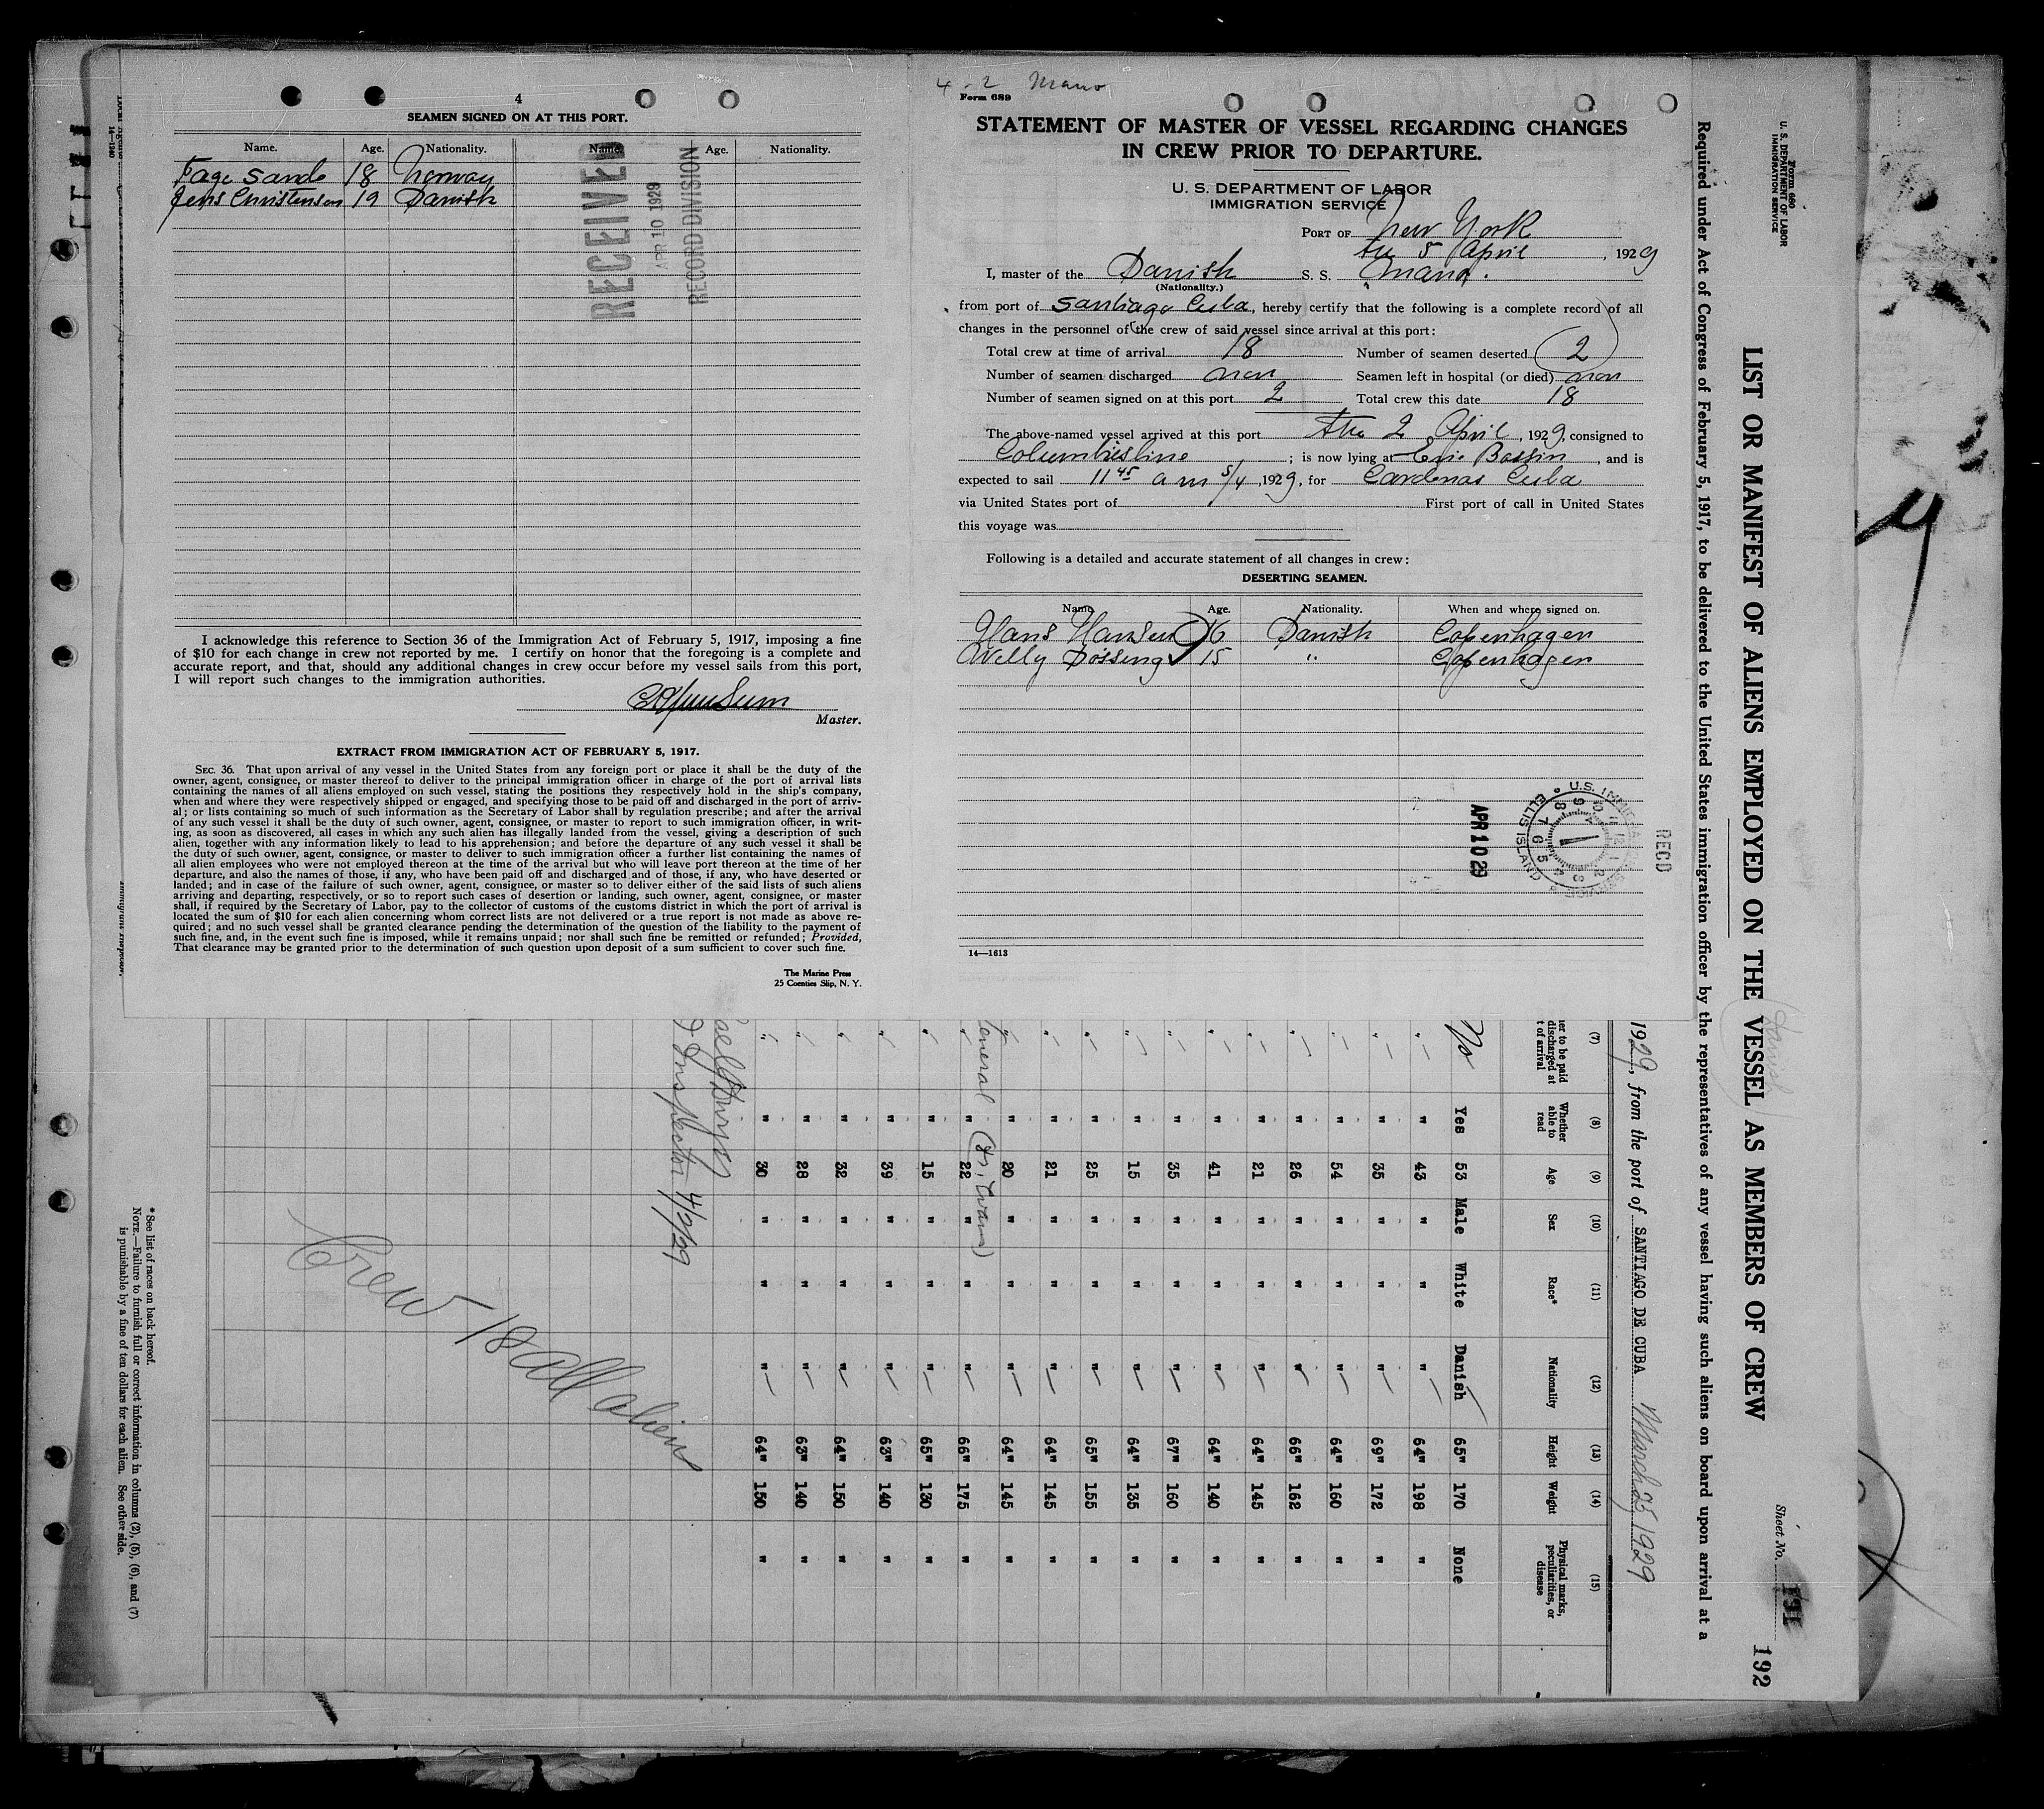 4
SEAMEN SIGNED ON AT THIS PORT.
Name. Age. Nationality. Name. Age. Nationality.
Fage Sande 18 Norway
Jens Christensen 19 Danish
RECEIVED
APR 10 1929
RECORD DIVISION
I acknowledge this reference to Section 36 of the Immigration Act of February 5, 1917, imposing a fine
of $10 for each change in crew not reported by me. I certify on honor that the foregoing is a complete and
accurate report, and that, should any additional changes in crew occur before my vessel sails from this port,
I will report such changes to the immigration authorities.
Master.
EXTRACT FROM IMMIGRATION ACT OF FEBRUARY 5, 1917.
SEC. 36. That upon arrival of any vessel in the United States from any foreign port or place it shall be the duty of the
owner, agent, consignee, or master thereof to deliver to the principal immigration officer in charge of the port of arrival lists
containing the names of all aliens employed on such vessel, stating the positions they respectively hold in the ship's company,
when and where they were respectively shipped or engaged, and specifying those to be paid off and discharged in the port of arriv-
al; or lists containing so much of such information as the Secretary of Labor shall by regulation prescribe; and after the arrival
of any such vessel it shall be the duty of such owner, agent, consignee, or master to report to such immigration officer, in writ-
ing, as soon as discovered, all cases in which any such alien has illegally landed from the vessel, giving a description of such
alien, together with any information likely to lead to his apprehension; and before the departure of any such vessel it shall be
the duty of such owner, agent, consignee, or master to deliver to such immigration officer a further list containing the names of
all alien employees who were not employed thereon at the time of the arrival but who will leave port thereon at the time of her
departure, and also the names of those, if any, who have been paid off and discharged and of those, if any, who have deserted or
landed; and in case of the failure of such owner, agent, consignee, or master so to deliver either of the said lists of such aliens
arriving and departing, respectively, or so to report such cases of desertion or landing, such owner, agent, consignee, or master
shall, if required by the Secretary of Labor, pay to the collector of customs of the customs district in which the port of arrival is
located the sum of $10 for each alien concerning whom correct lists are not delivered or a true report is not made as above re-
quired; and no such vessel shall be granted clearance pending the determination of the question of the liability to the payment of
such fine, and, in the event such fine is imposed, while it remains unpaid; nor shall such fine be remitted or refunded; Provided,
That clearance may be granted prior to the determination of such question upon deposit of a sum sufficient to cover such fine.
The Marine Press
25 Coenties Slip, N. Y.
4 - 2 Mano
Form 689
STATEMENT OF MASTER OF VESSEL REGARDING CHANGES
IN CREW PRIOR TO DEPARTURE.
U. S. DEPARTMENT OF LABOR
IMMIGRATION SERVICE
PORT OF New York
the 5 April, 1929
I, master of the Danish S. S. Mano.
(Nationality.)
from port of Santiago Cuba, hereby certify that the following is a complete record of all
changes in the personnel of the crew of said vessel since arrival at this port:
Total crew at time of arrival 18 Number of seamen deserted 2
Number of seamen discharged non Seamen left in hospital (or died) non
Number of seamen signed on at this port 2 Total crew this date 18
The above-named vessel arrived at this port the 2 April, 1929, consigned to
Columbusline; is now lying at Erie Bassin, and is
expected to sail 11 45 am 5/4, 1929, for Cardenas Cuba
via United States port of First port of call in United States
this voyage was
Following is a detailed and accurate statement of all changes in crew:
DESERTING SEAMEN.
Name. Age. Nationality. When and where signed on.
Hans Hansen 16 Danish Copenhagen
Welly Døssing 15 " Copenhagen
APR 10 29
U.S. IMMIGRATION SERVICE ELLIS ISLAND
REC'D
14—1613
Form 680
U. S. DEPARTMENT OF LABOR
IMMIGRATION SERVICE
Sheet No. 191
192
LIST OR MANIFEST OF ALIENS EMPLOYED ON THE VESSEL AS MEMBERS OF CREW
Danish
Required under Act of Congress of February 5, 1917, to be delivered to the United States immigration officer by the representatives of any vessel having such aliens on board upon arrival at a
1929, from the port of SANTIAGO DE CUBA March 25, 1929
(7) (8) (9) (10) (11) (12) (13) (14) (15)
her to be paid discharged at t of arrival
Whether able to read
Age
Sex
Race*
Nationality
Height
Weight
Physical marks, peculiarities, or disease
No Yes 53 Male White Danish 65" 170 None
" " 43 " " " 64" 198 "
" " 35 " " " 69" 172 "
" " 54 " " " 64" 160 "
" " 26 " " " 66" 162 "
" " 21 " " " 64" 145 "
" " 41 " " " 64" 140 "
" " 35 " " " 67" 160 "
" " 15 " " " 64" 135 "
" " 25 " " " 65" 155 "
" " 21 " " " 64" 145 "
" " 20 " " " 64" 145 "
eneral
" " 22 " " " 66" 175 "
" " 15 " " " 65" 130 "
" " 39 " " " 63" 140 "
" " 32 " " " 64" 150 "
" " 28 " " " 63" 140 "
" " 30 " " " 64" 150 "
Inspector 4/2/29
Crew 18 all aliens
* See list of races on back hereof.
NOTE.—Failure to furnish full or correct information in columns (2), (5), (6), and (7)
is punishable by a fine of ten dollars for each alien. See other side.
14—1240